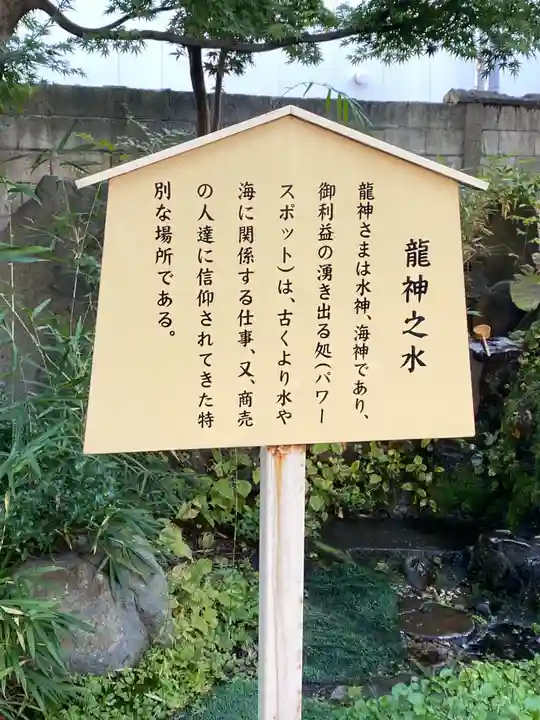 龍神之水
龍神さまは水神、海神であり、
御利益の湧き出る処(パワー
スポット)は、古くより水や
海に関係する仕事、又、商売
の人達に信仰されてきた特
別な場所である。